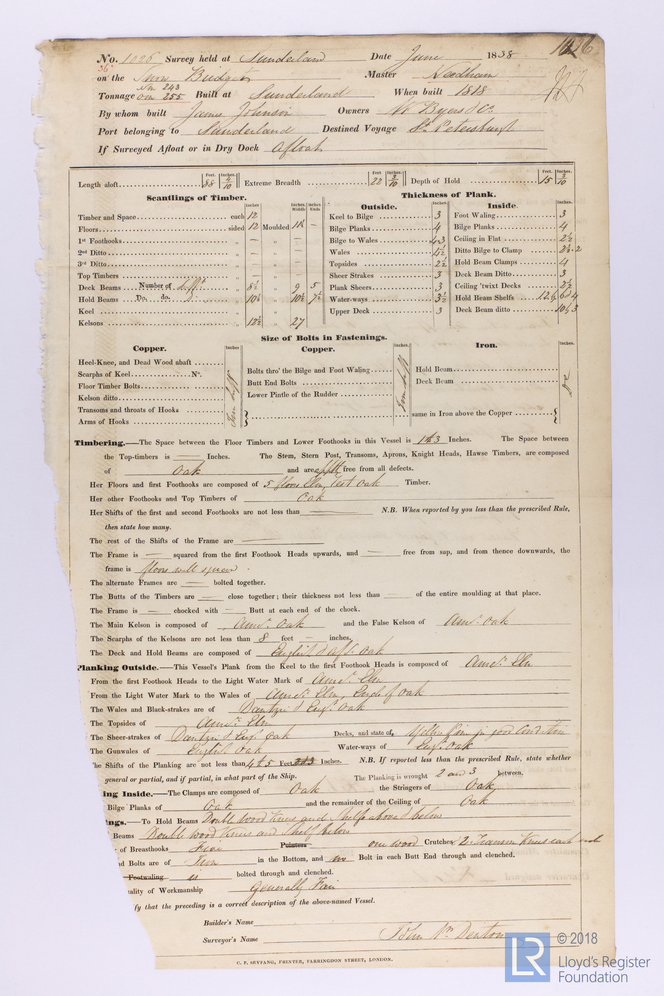 No. 1026 Survey held at Sunderland Date June 1838 1026
on the Snow Bridget Master Needham
Tonnage 243 255 Built at Sunderland When built 1818
By whom built James Johnson Owners W Byers & Co
Port belonging to Sunderland Destined Voyage St. Petersburgh
If Surveyed Afloat or in Dry Dock Afloat
Feet. Inches. Feet Inches. Feet. Inches.
Length aloft 88 Extreme Breadth 22 Depth of Hold 15
Scantlings of Timber.
Timber and Space each 12
Floors sided 12 Moulded
1st Foothooks „ — „ —
2nd Ditto „ — „ —
3rd Ditto „ — „ —
Top Timbers „ — „ —
Deck Beams Number of 9 5
Hold Beams Do. do. 10½ 10½ 7½
Keel
Kelsons 12½ „ 27
Thickness of Plank.
Outside. Inches
Keel to Bilge 3
Bilge Planks 4
Bilge to Wales
Wales 4½
Topsides 2½
Sheer Strakes 3
Plank Sheers 3
Water-ways 3½
Upper Deck 3
Inside. Inches
Foot Waling 3
Bilge Planks 4
Ceiling in Flat 2½
Ditto Bilge to Clamp
Hold Beam Clamps 4
Deck Beam Ditto 3
Ceiling 'twixt Decks 2½
Hold Beam Shelfs
Deck Beam ditto
Size of Bolts in Fastenings.
Copper. Inches
Heel-Knee, and Dead Wood abaft
Scarphs of Keel No.
Floor Timber Bolts
Kelson ditto
Transoms and throats of Hooks
Arms of Hooks
Copper. Inches
Bolts thro' the Bilge and Foot Waling
Butt End Bolts
Lower Pintle of the Rudder
Iron. Inches.
Hold Beam
Deck Beam
same in Iron above the Copper
Timbering.—The Space between the Floor Timbers and Lower Foothooks in this Vessel is 1 & 3 Inches. The Space between
the Top-timbers is — Inches. The Stem, Stern Post, Transoms, Aprons, Knight Heads, Hawse Timbers, are composed
of Oak and are free from all defects.
Her Floors and first Foothooks are composed of 5 floors Elm, rest Oak Timber.
Her other Foothooks and Top Timbers of Oak
Her Shifts of the first and second Foothooks are not less than — N.B. When reported by you less than the prescribed Rule,
then state how many.
The rest of the Shifts of the Frame are —
The Frame is — squared from the first Foothook Heads upwards, and — free from sap, and from thence downwards, the
frame is floors well square.
The alternate Frames are — bolted together.
The Butts of the Timbers are — close together; their thickness not less than — of the entire moulding at that place.
The Frame is — chocked with — Butt at each end of the chock.
The Main Kelson is composed of Amn. Oak and the False Kelson of Amn. Oak
The Scarphs of the Kelsons are not less than 8 feet — inches.
The Deck and Hold Beams are composed of English & Afn. Oak
Planking Outside.—This Vessel's Plank from the Keel to the first Foothook Heads is composed of Amn. Elm
From the first Foothook Heads to the Light Water Mark of Amn. Elm
From the Light Water Mark to the Wales of Amn. Elm, Engl. & Oak
The Wales and Black-strakes are of Dantzic & Eng. Oak
The Topsides of Amn. Elm
The Sheer-strakes of Dantzic & Eng. Oak Decks, and state of, Yellow Pine in good Condition
The Gunwales of English Oak Water-ways of Eng. Oak
The Shifts of the Planking are not less than 4 & 5 Feet Inches. N.B. If reported less than the prescribed Rule, state whether
general or partial, and if partial, in what part of the Ship. The Planking is wrought 2 and 3 between.
ing Inside.—The Clamps are composed of Oak the Stringers of Oak
Bilge Planks of Oak and the remainder of the Ceiling of Oak
ngs.—To Hold Beams Double wood knees and shelfs above & below
Beams Double wood knees and shelf below
of Breasthooks Five Pointers one wood Crutches 2 Transom Knees each end
nd Bolts are of Iron in the Bottom, and no Bolt in each Butt End through and clenched.
Footwaling is bolted through and clenched.
ality of Workmanship Generally Fair
fy that the preceding is a correct description of the above-named Vessel.
Builder's Name
Surveyor's Name John Wm Denton
C. F. SEYFANG, PRINTER, FARRINGDON STREET, LONDON.
LR © 2018
Lloyd's Register
Foundation